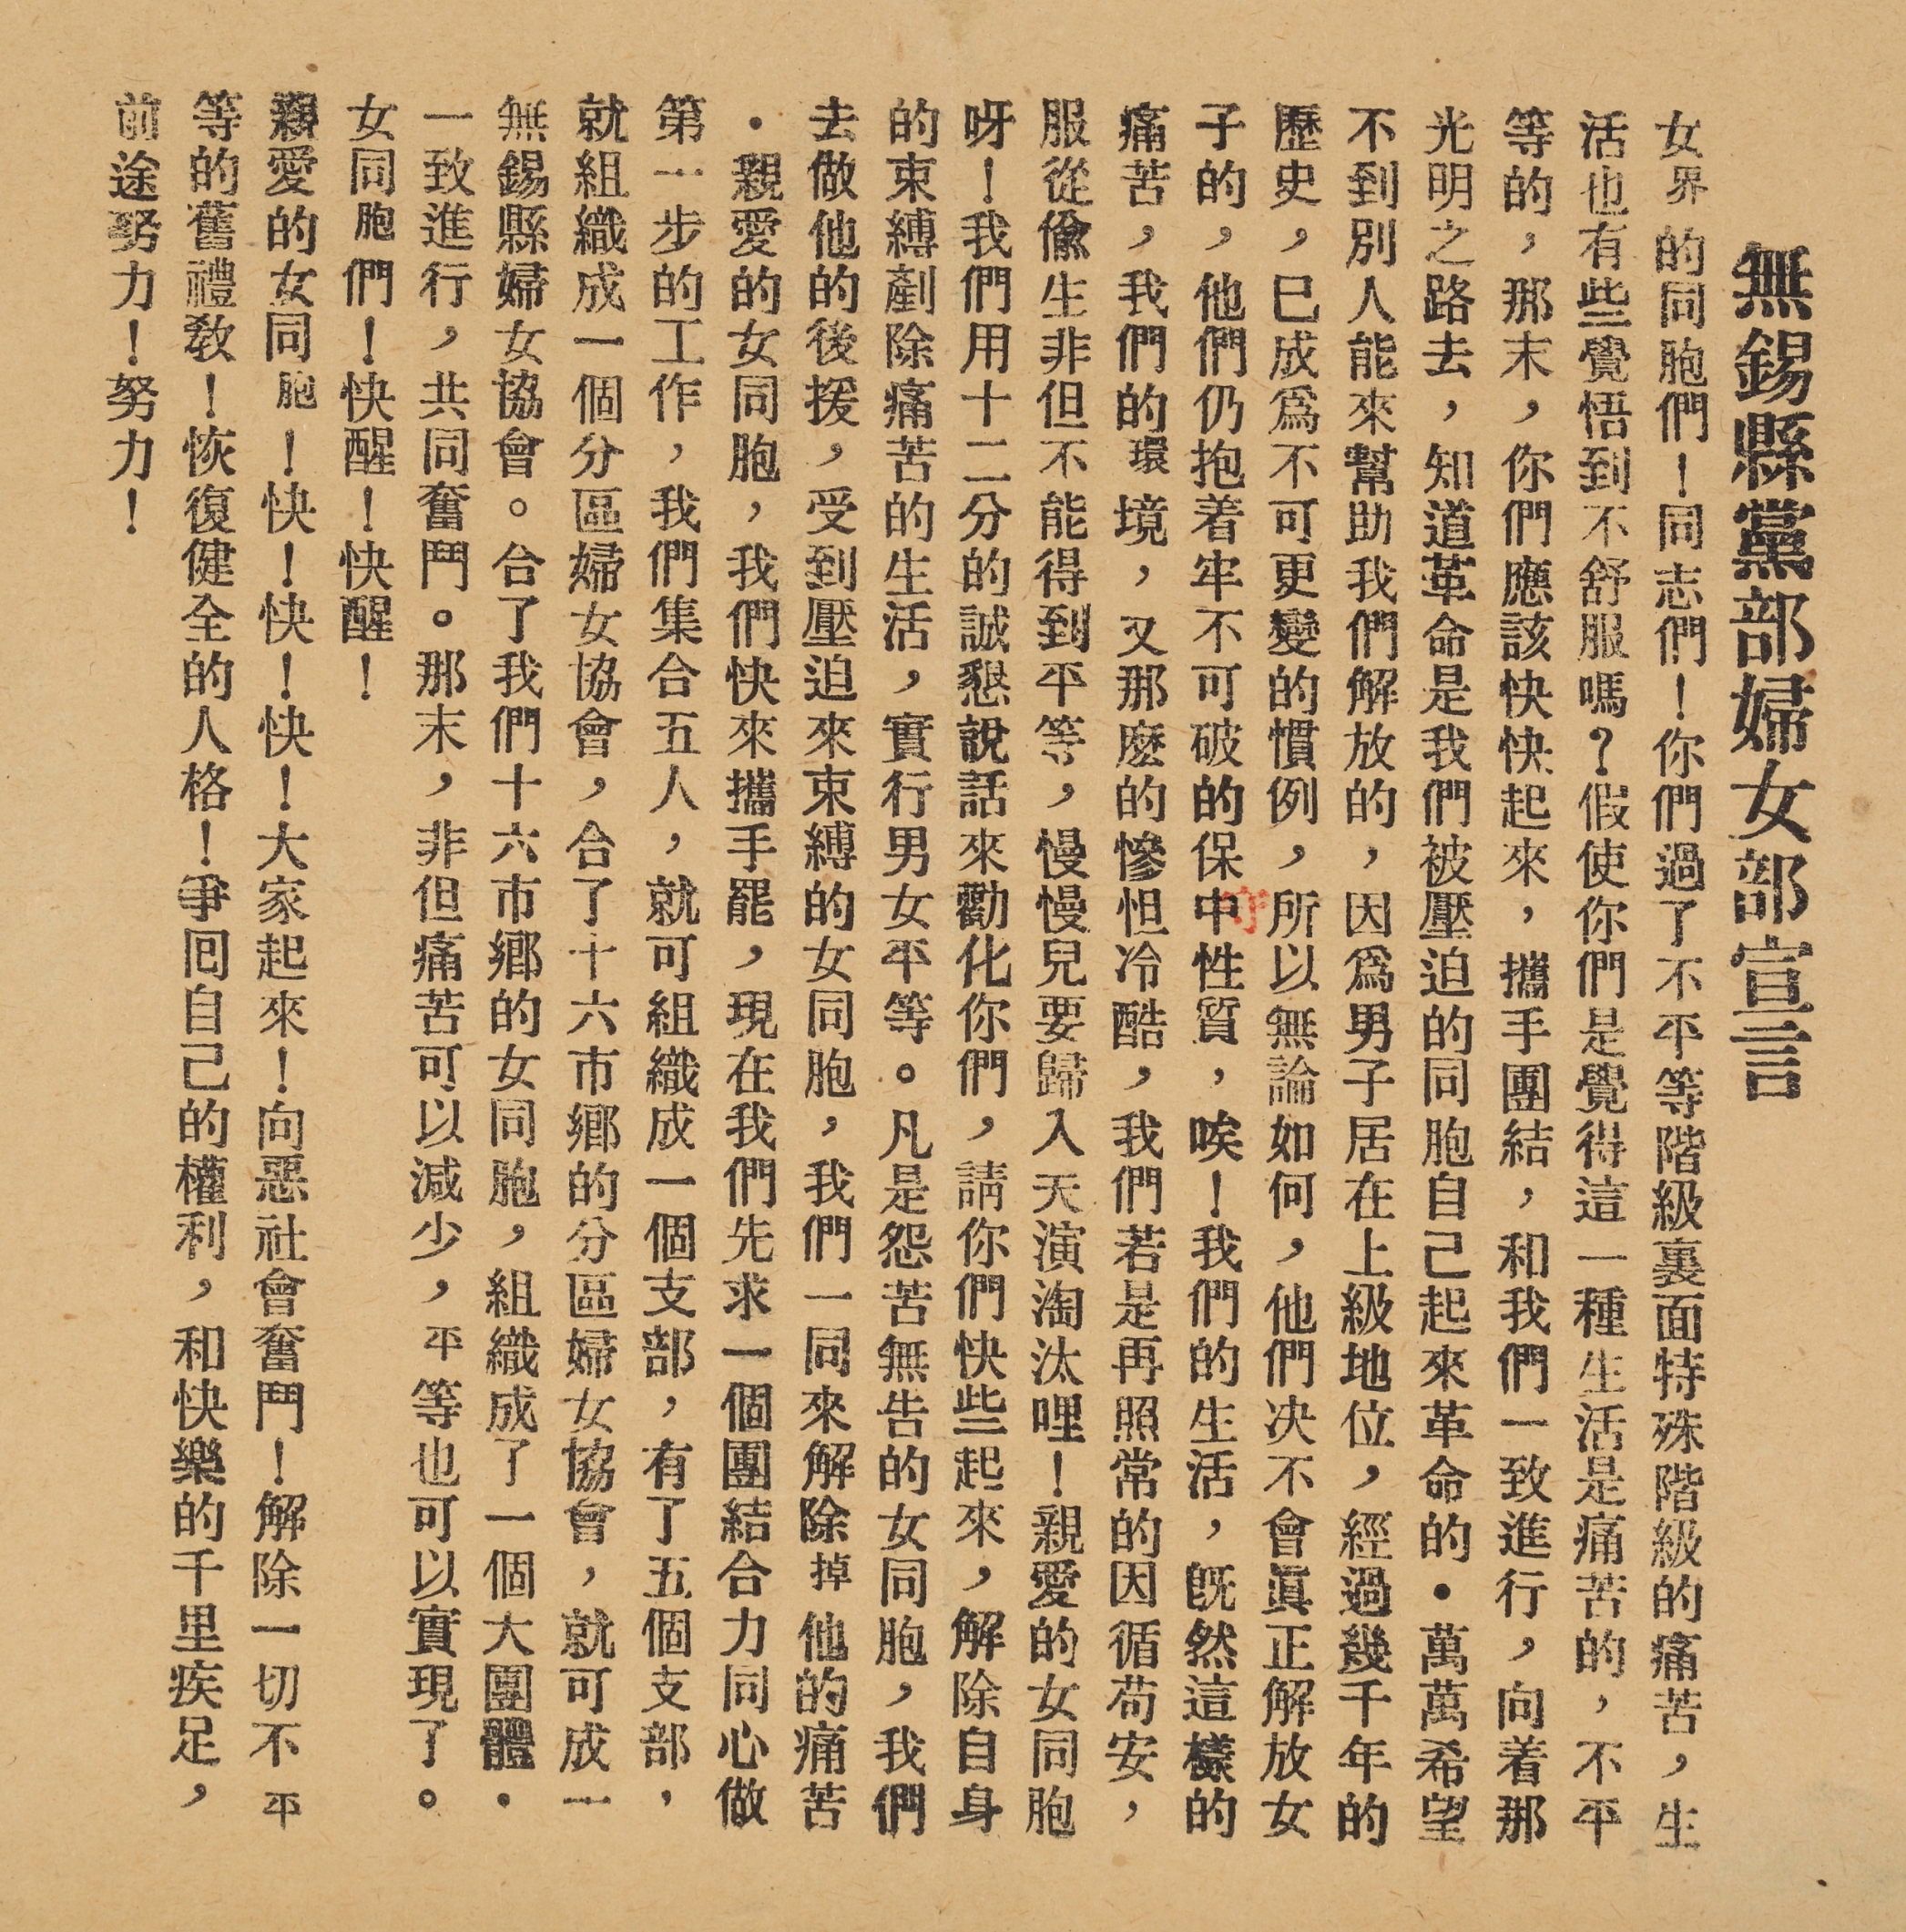 無錫縣黨部婦女部宣言
女界的同胞們！同志們！你們過了不平等階級裏面特殊階級的痛苦，生
活也有些覺悟到不舒服嗎？假使你們是覺得這一種生活是痛苦的，不平
等的，那末，你們應該快快起來，攜手團結，和我們一致進行，向着那
光明之路去，知道革命是我們被壓迫的同胞自己起來革命的・萬萬希望
不到別人能來幫助我們解放的，因爲男子居在上級地位，經過幾千年的
歷史，已成爲不可更變的慣例，所以無論如何，他們决不會眞正解放女
子的，他們仍抱着牢不可破的保中性質，唉！我們的生活，旣然這樣的
守
痛苦，我們的環境，又那麽的慘怛冷酷，我們若是再照常的因循苟安，
服從偸生非但不能得到平等，慢慢兒要歸入天演淘汰哩！親愛的女同胞
呀！我們用十二分的誠懇說話來勸化你們，請你們快些起來，解除自身
的束縛剷除痛苦的生活，實行男女平等。凡是怨苦無告的女同胞，我們
去做他的後援，受到壓迫來束縛的女同胞，我們一同來解除掉他的痛苦
・親愛的女同胞，我們快來攜手罷，現在我們先求一個團結合力同心做
第一步的工作，我們集合五人，就可組織成一個支部，有了五個支部，
就組織成一個分區婦女協會，合了十六市鄉的分區婦女協會，就可成一
無錫縣婦女協會。合了我們十六市鄉的女同胞，組織成了一個大團體・
一致進行，共同奮鬥。那末，非但痛苦可以減少，平等也可以實現了。
女同胞們！快醒！快醒！
親愛的女同胞！快！快！快！大家起來！向惡社會奮鬥！解除一切不平
等的舊禮敎！恢復健全的人格！爭囘自己的權利，和快樂的千里疾足，
前途努力！努力！